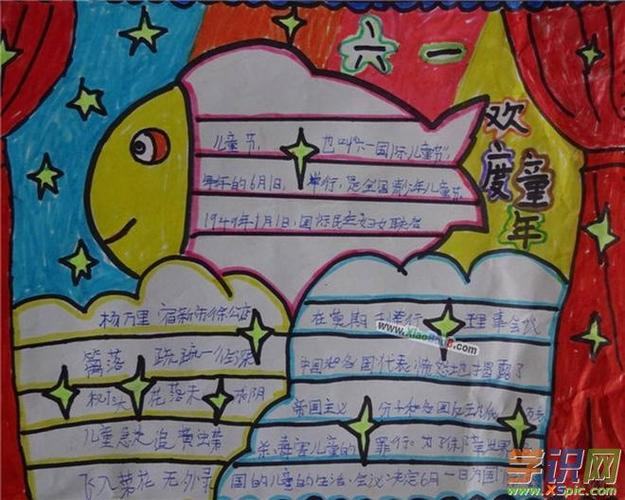 六一
欢度童年
儿童节, 也叫"六一国际儿童节",
每年的6月1日, 举行,是全国青少年儿童节.
1949年1月1日,国际民主妇女联合
杨万里 宿新市徐公店
篱落 疏疏一径深
树头 花落未 成阴
儿童急走追 黄蝶
飞入菜花 无处寻
在莫斯 科举行 理事会议
中国和各国代表,愤怒地揭露了
帝国主义 分子和各国反
杀,毒害儿童的 罪行.为了保障 世界
国的儿童的生活,会议决定6月一日为国
www.XiaoBaoB.com
学识网
www.XSpic.com